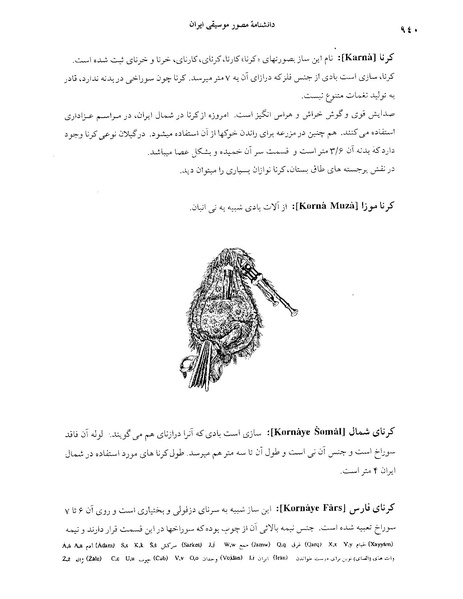 دانشنامهٔ مصور موسیقی ایران
۹۴۰
کرنا [Karnà]: نام این ساز بصورتهای «کرنا» کارنا، کرنای، کارنای، خرنا و خرنای ثبت شده است.
کرنا، سازی است بادی از جنس فلز که درازای آن به ۷ متر میرسد. کرنا چون سوراخی در بدنه ندارد، قادر
به تولید نغمات متنوع نیست.
صدایش قوی و گوش خراش و هراس انگیز است. امروزه از کرنا در شمال ایران، در مراسم عزاداری
استفاده می‌کنند. هم چنین در مزرعه برای راندن خوکها از آن استفاده میشود. در گیلان نوعی کرنا وجود
دارد که بدنه آن ۳/۶ متر است و قسمت سر آن خمیده و بشکل عصا میباشد.
در نقش برجسته های طاق بستان، کرنا نوازان بسیاری را میتوان دید.
کرنا موزا [Kornà Muzà]: از آلات بادی شبیه به نی انبان.
کرنای شمال [Kornàye Šomâl]: سازی است بادی که آنرا درازنای هم می گویند. لوله آن فاقد
سوراخ است و جنس آن نی است و طول آن تا سه متر هم میرسد. طول کرنا های مورد استفاده در شمال
ایران ۴ متر است.
کرنای فارس [Kornàye Fàrs]: این ساز شبیه به سرنای دزفولی و بختیاری است و روی آن ۶ تا ۷
سوراخ تعبیه شده است. جنس نیمه بالائی آن از چوب بوده که سوراخها در این قسمت قرار دارند و نیمه